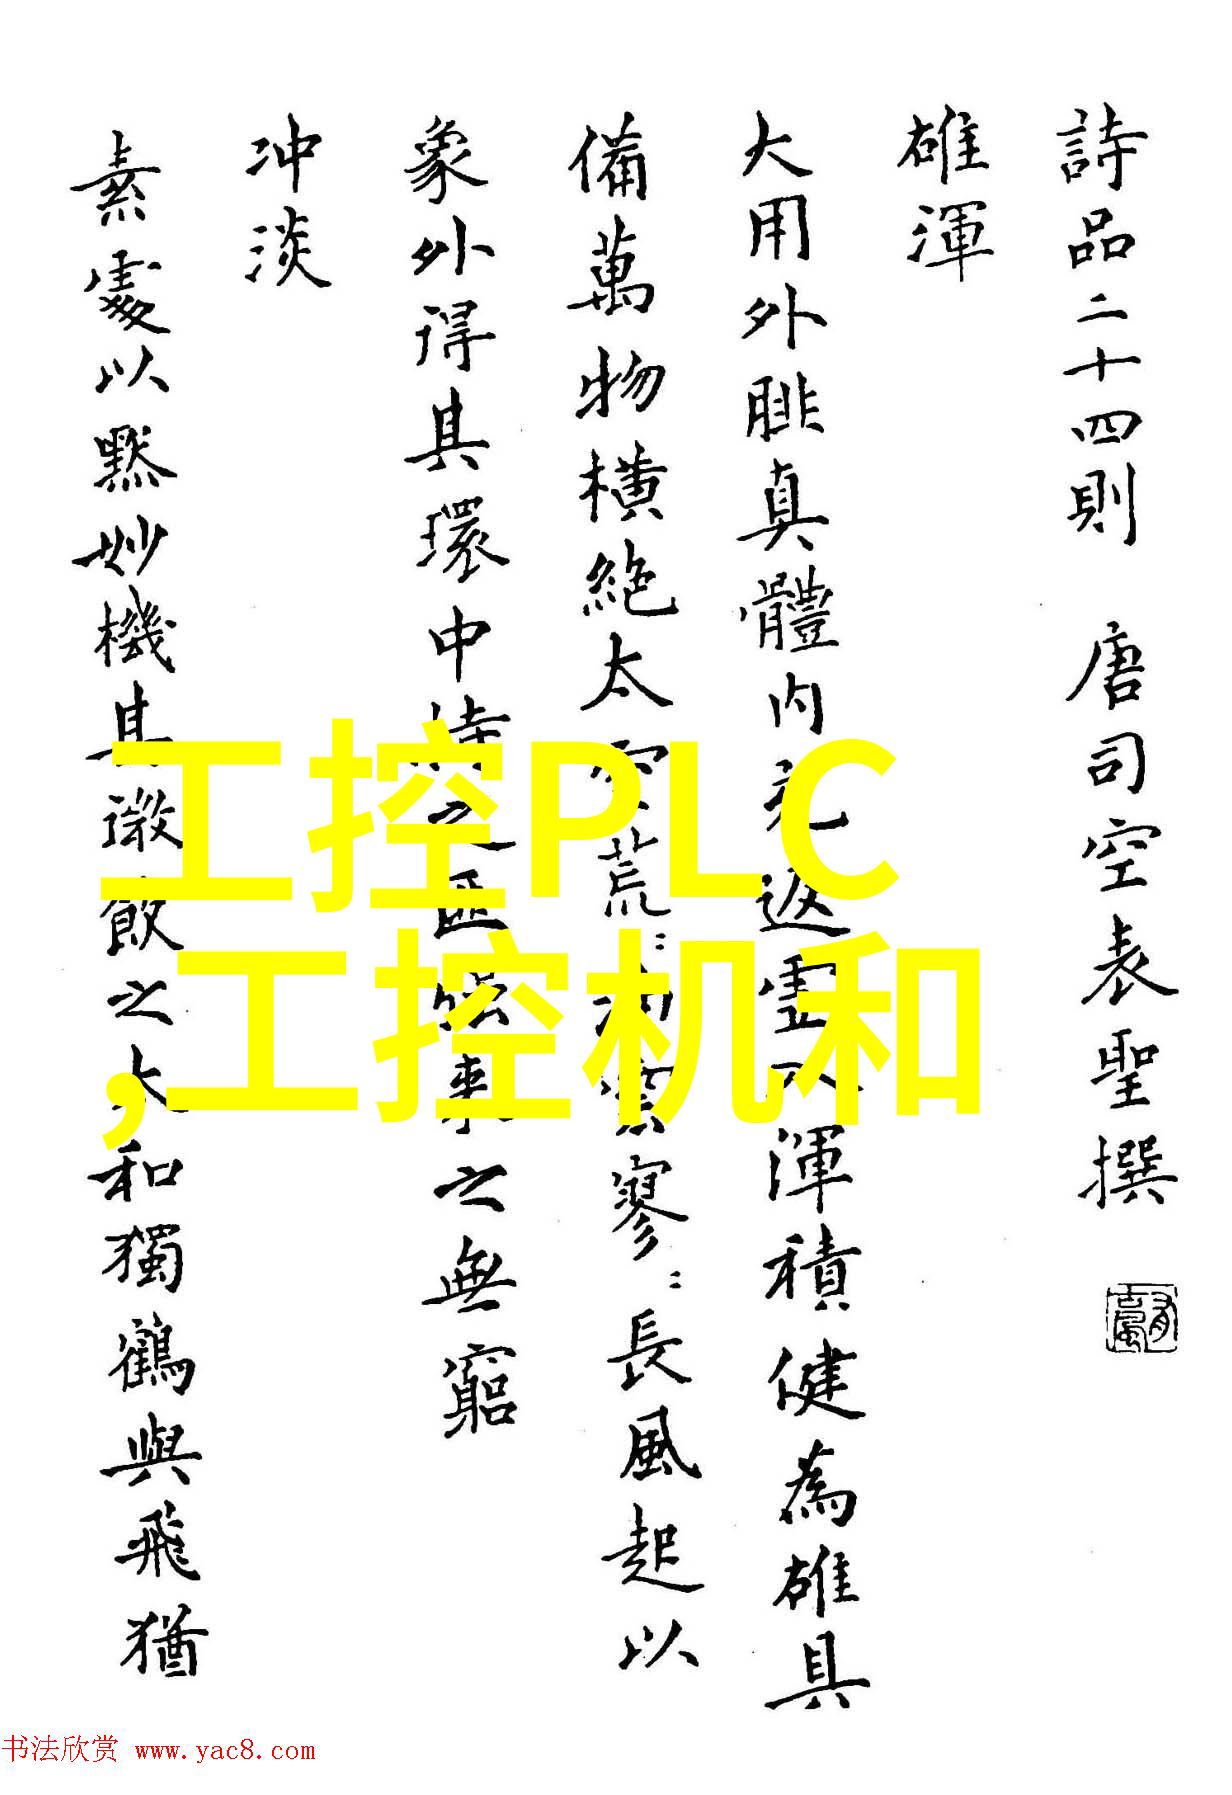 詩品二十四則 唐司空表聖撰
雄渾
大用外腓真體内充返虛入渾積健為雄具
備萬物橫絶太空荒〻油雲寥〻長風起以
象外得其環中持之匪強來之無窮
冲淡
素處以默妙機其微飲之太和獨鶴與飛猶
工控PLC
,工控机和
书法欣赏 www.yac8.com